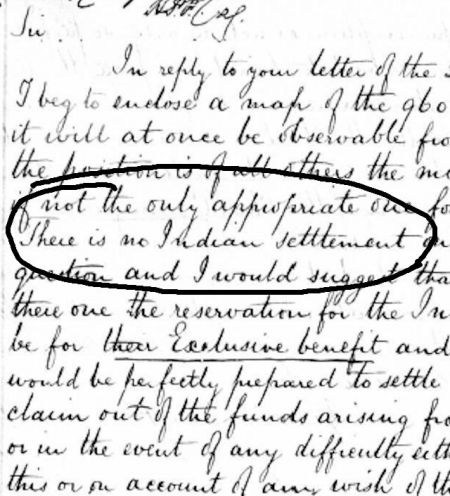 Sir.
In reply to your letter of the
I beg to enclose a map of the 960
it will at once be observable fro
the position is of all others the mo
if not the only appropriate one fo
There is no Indian settlement on
question and I would suggest tha
there one the reservation for the In
be for their Exclusive benefit and
would be perfectly prepared to settle
claim out of the funds arising fro
or in the event of any difficulty eith
this or on account of any wish of th